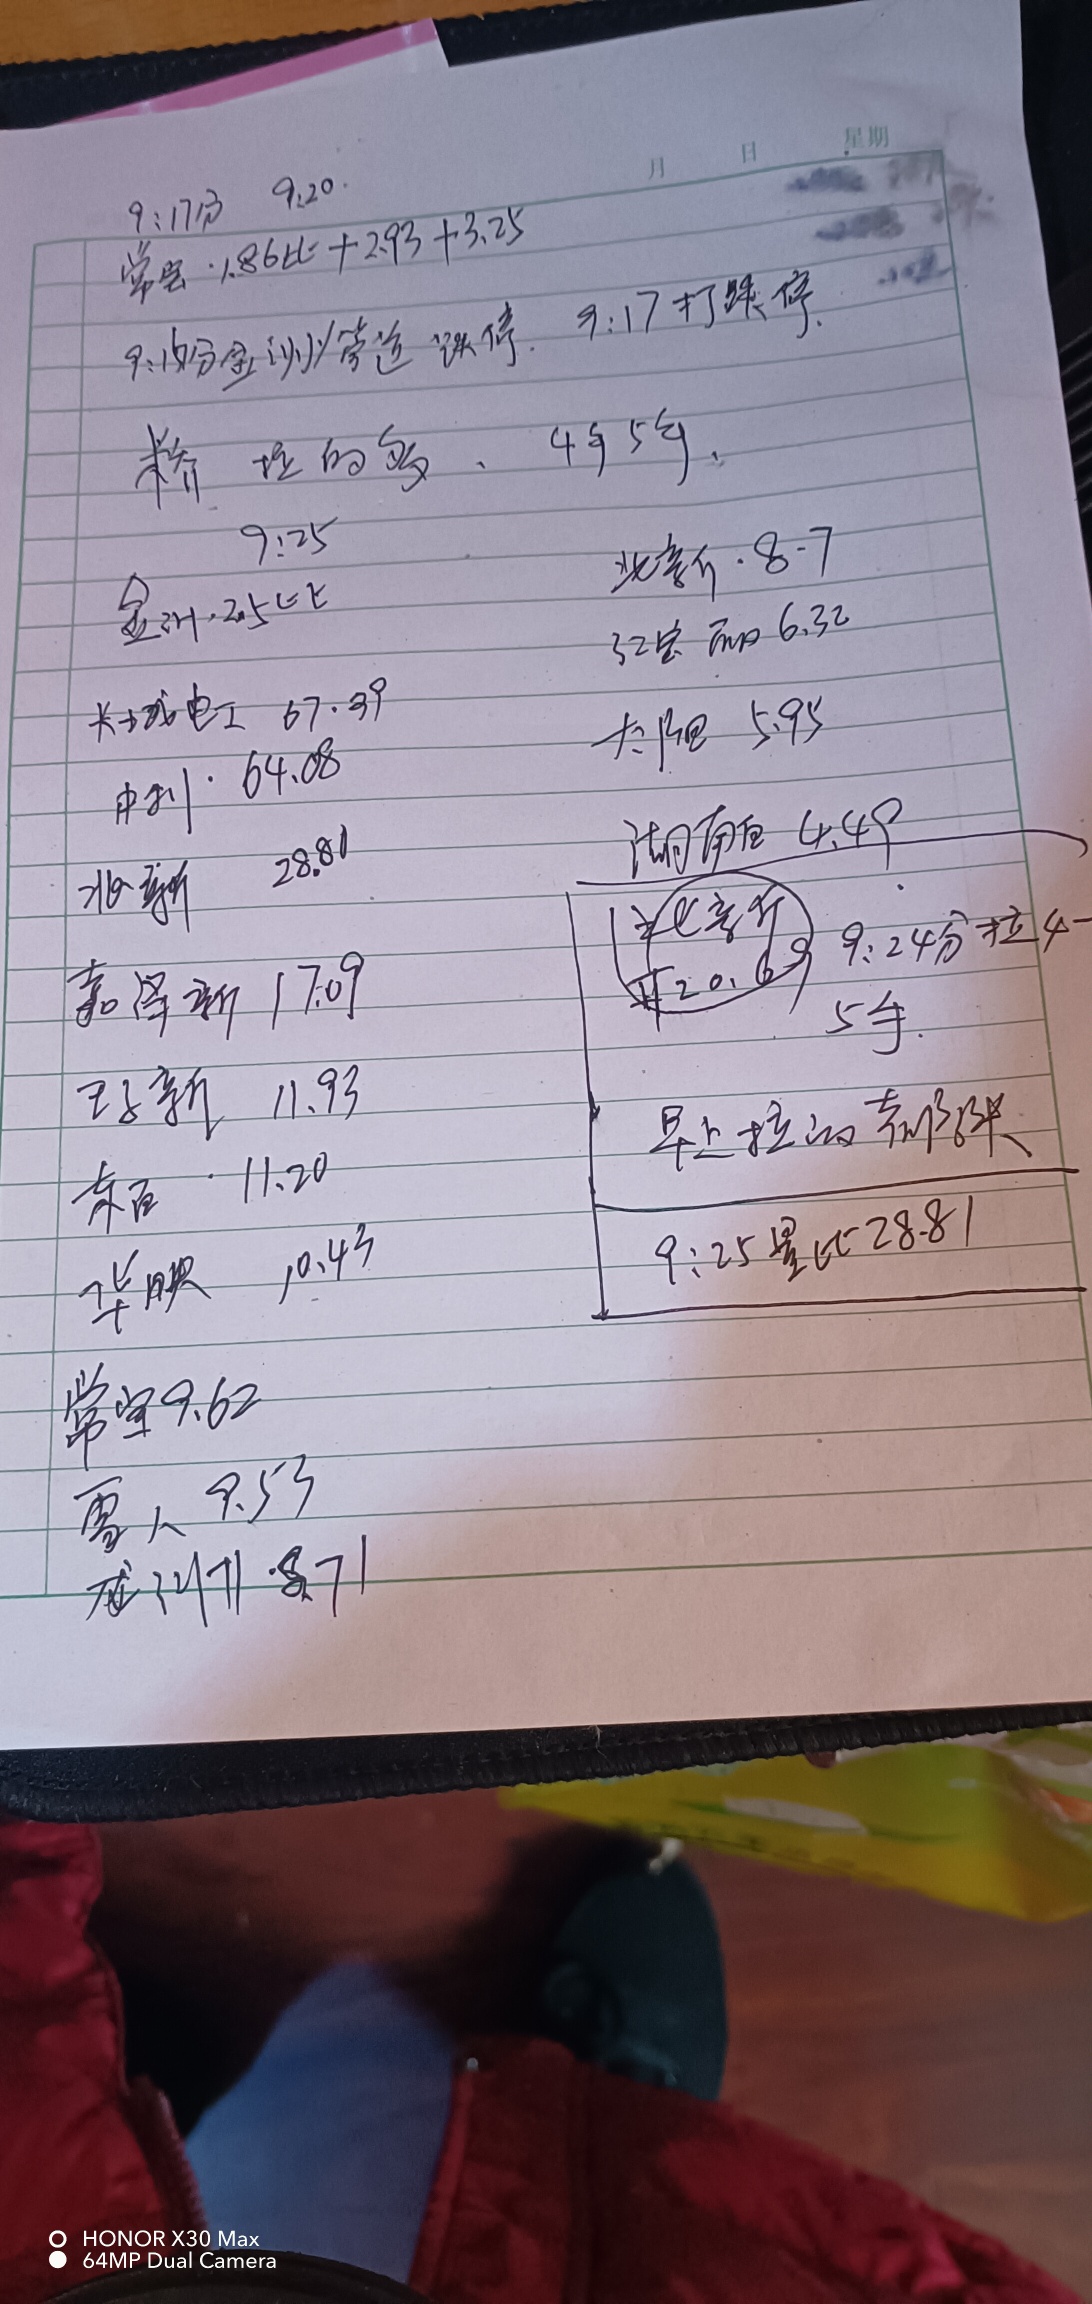 月 日 星期
9:17分 9:20.
常宝·1.86比+2.93+3.25
9:18分金洲管道跌停. 9:17打跌停.
拉的多、4手5手、
9:25
金洲·2.5比
北新·8-7
6.32
长城电工 67.39
太阳 5.95
中利·64.08
湖南 4.49
北新 28.81
北新
开20.69
9:24分拉4-
5手.
嘉泽新 17.09
新 11.93
早上拉的
11.20
9:25量比28.81
华映 10.43
常宝9.62
雪人 9.53
8.71
HONOR X30 Max
64MP Dual Camera